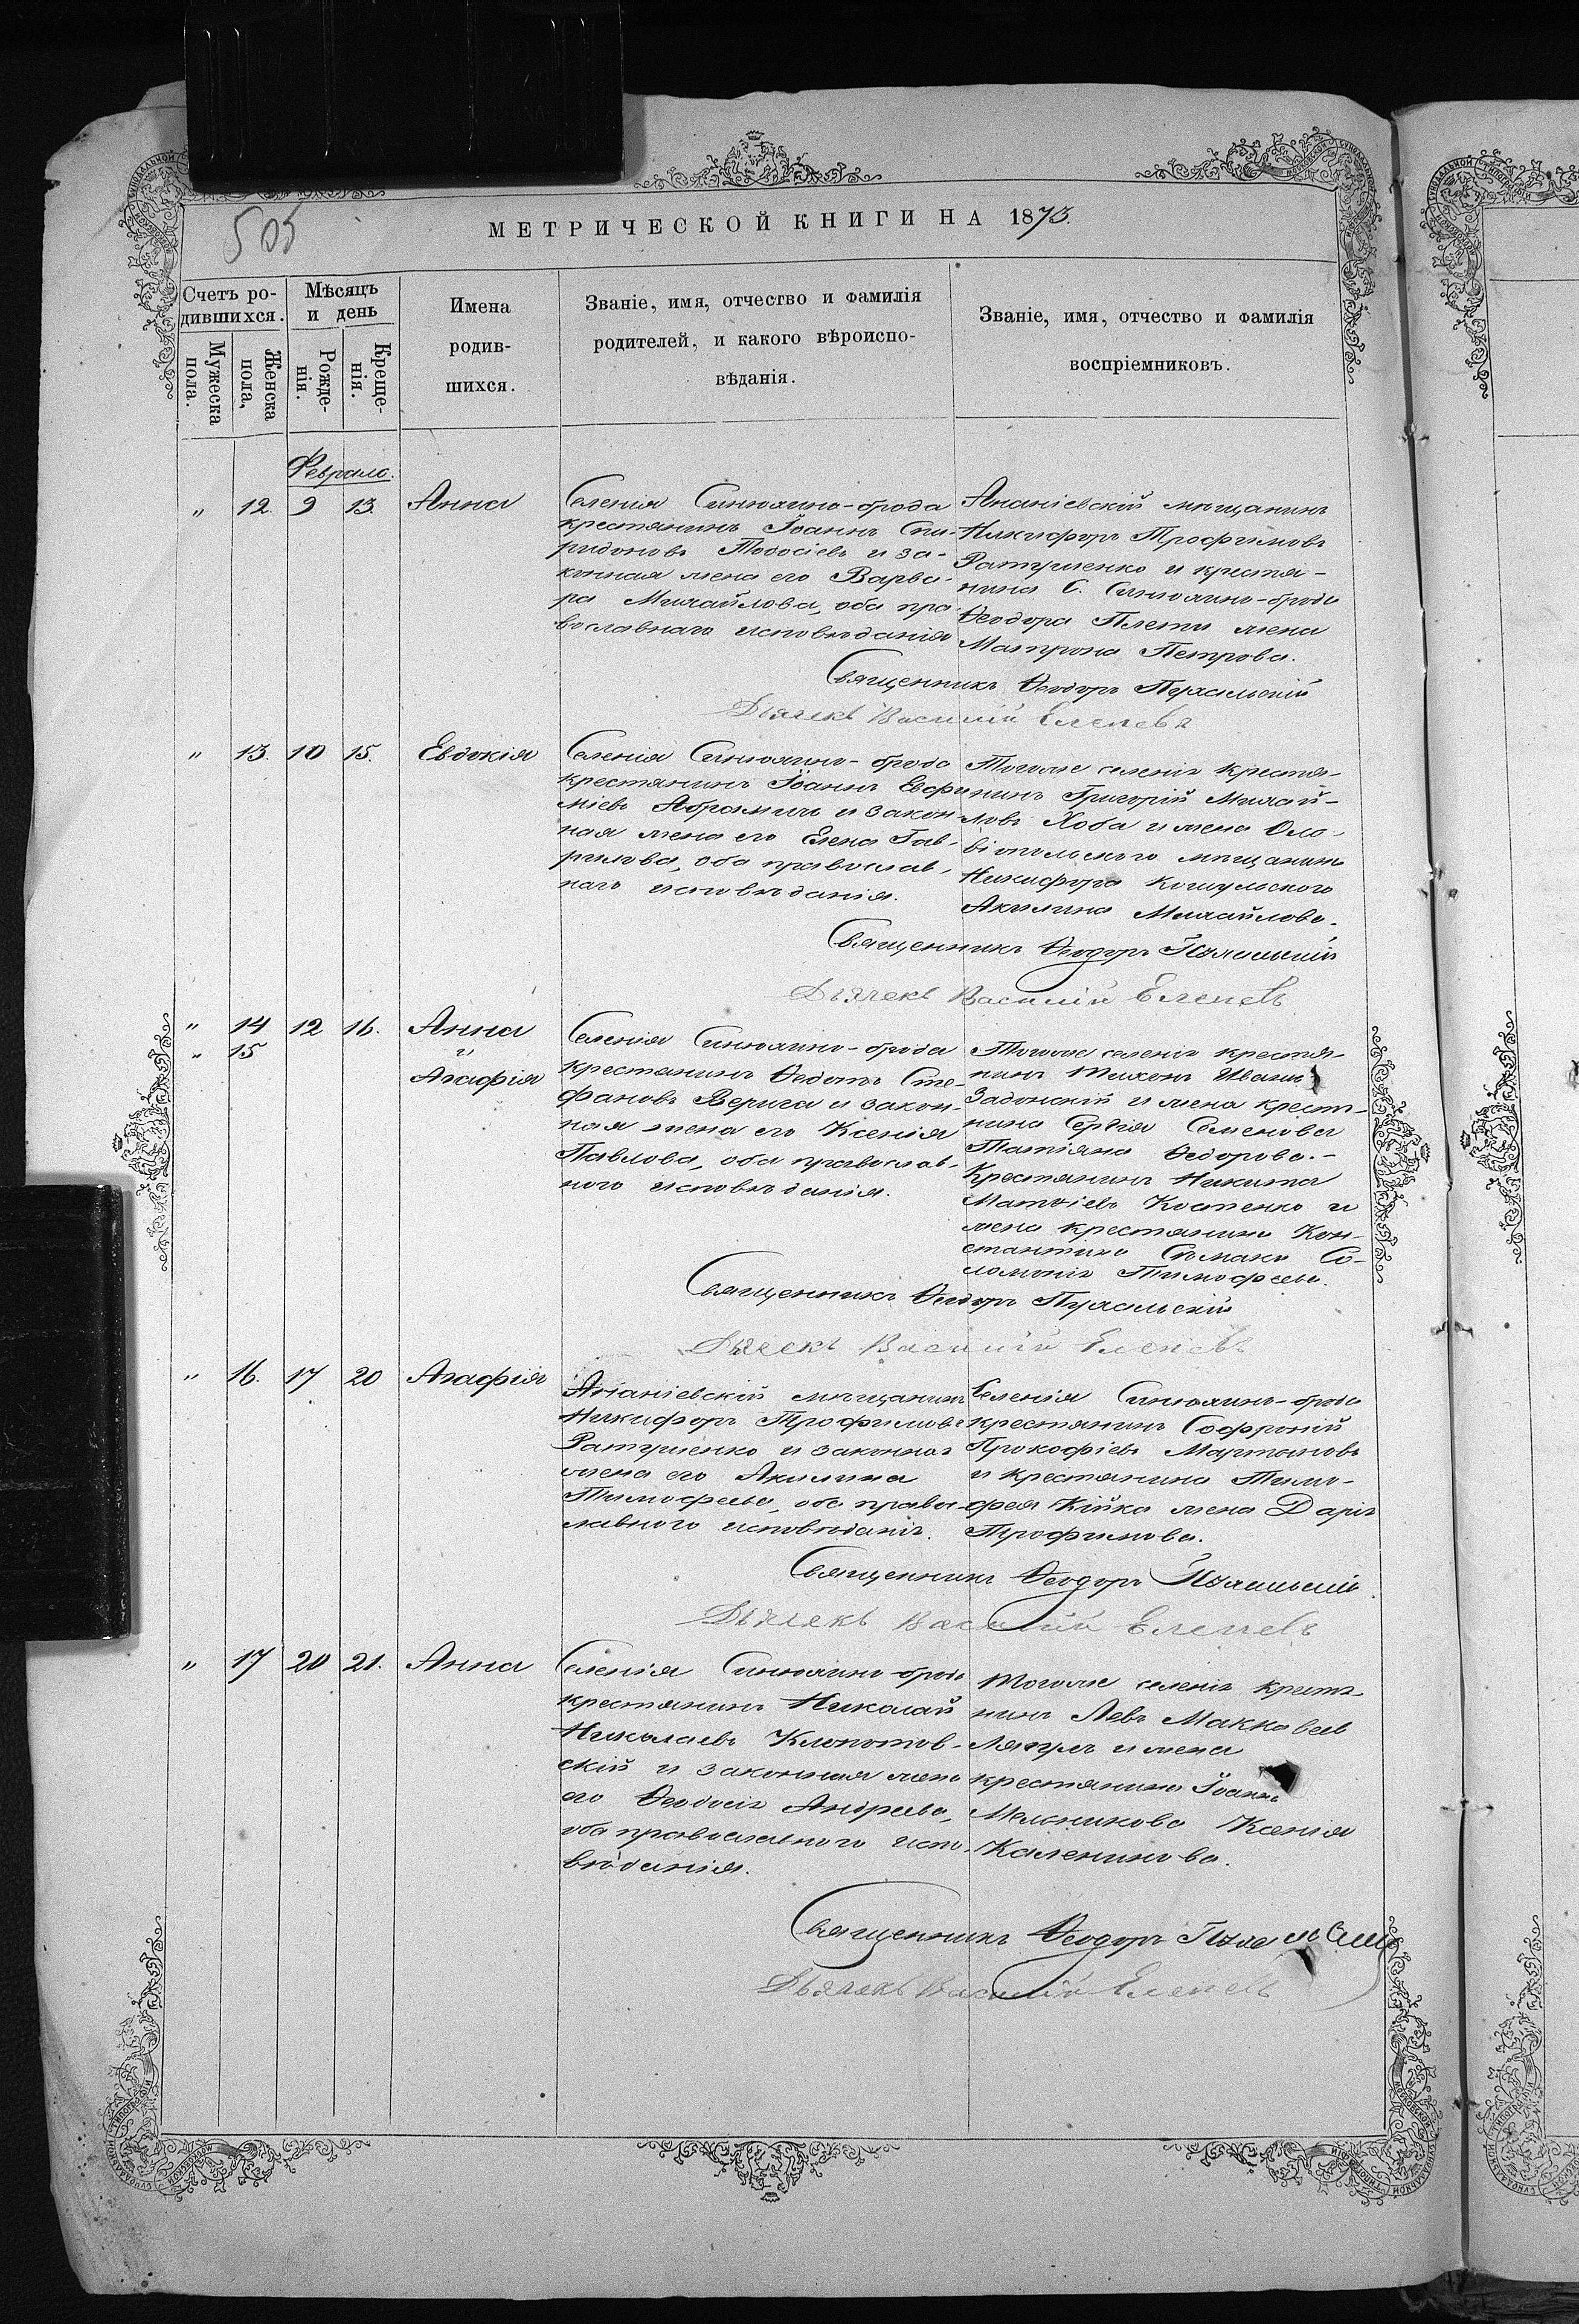 505
МЕТРИЧЕСКОЙ КНИГИ НА 1873.
Счетъ ро-
дившихся.
Мѣсяцъ
и день
Имена
родив-
шихся.
Званіе, имя, отчество и фамилія
родителей, и какого вѣроиспо-
вѣданія.
Званіе, имя, отчество и фамилія
воспріемниковъ.
Мужеска
пола.
Женска
пола,
Рожде-
нія.
Креще-
нія.
Февраль.
" 12. 9 13. Анна
Селенія Синюхино-брода
крестянинъ Іоаннъ Спи-
ридоновъ и за-
конная жена его Варва-
ра Михайлова, оба пра-
вославнаго исповѣданія
Ананіевскій мѣщанинъ
Никифоръ Трофимовъ
Ратушенко и крестя-
нина С. Синюхино-брода
Ѳеодора жена
Матрона Петрова.
Священникъ Ѳеодоръ
Дьячекъ Василій
" 13. 10 15. Евдокія
Селенія Синюхино-брода
крестянинъ Іоаннъ Евфи
міевъ и закон-
ная жена его Елена Гав-
рилова, оба православ-
наго исповѣданія.
Тогоже селенія крестя-
нинъ Григорій Михай-
ловъ Хоба и жена Оль-
віопольского мѣщанина
Никифора
Акилина Михайлова.
Священникъ Ѳеодоръ
Дьячекъ Василій
" 14 12 16. Анна
" 15
и
Агафія
Селенія Синюхино-брода
крестянинъ Ѳедотъ Сте-
фановъ Верига и закон-
ная жена его Ксенія
Павлова, оба православ-
ного исповѣданія.
Тогоже селенія крестя-
нинъ Тихонъ Ивановъ
Задонскій и жена крестя-
нина Сергія Семенова
Татіана Ѳедорова.-
Крестянинъ Никита
Матвіевъ Костенко и
жена крестянина Кон-
стантина Со-
ломонія Тимофеева.
Священникъ Ѳеодоръ
Дьячекъ Василій
" 16. 17 20 Агафія
Ананіевскій мѣщанинъ
Никифоръ Трофимовъ
Ратушенко и законная
жена его Акилина
Тимофеева, оба право-
славного исповѣданія.
Селенія Синюхино-брода
крестянинъ Софроній
Прокофіевъ Мартыновъ
и крестянина Тимо-
фея Кійка жена Дарія
Трофимова.
Священникъ Ѳеодоръ
Дьячекъ Василій
" 17 20 21. Анна
Селенія Синюхино-брода
крестянинъ Николай
Николаевъ Клопотов-
скій и законная жена
его Ѳеодосія Андреева,
оба православного испо-
вѣданія.
Тогоже селенія крестя-
нинъ Левъ Маккавеевъ
и жена
крестянина Іоанна
Мельникова Ксенія
Каленикова.
Священникъ Ѳеодоръ
Дьячекъ Василій